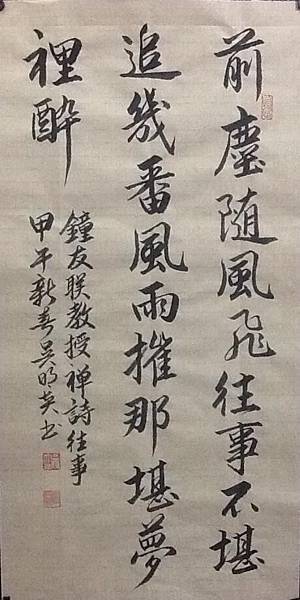 前塵随風飛往事不堪
追幾番風雨摧那堪夢
裡醉
鐘友联教授禅詩往事
甲午新春吴明英书